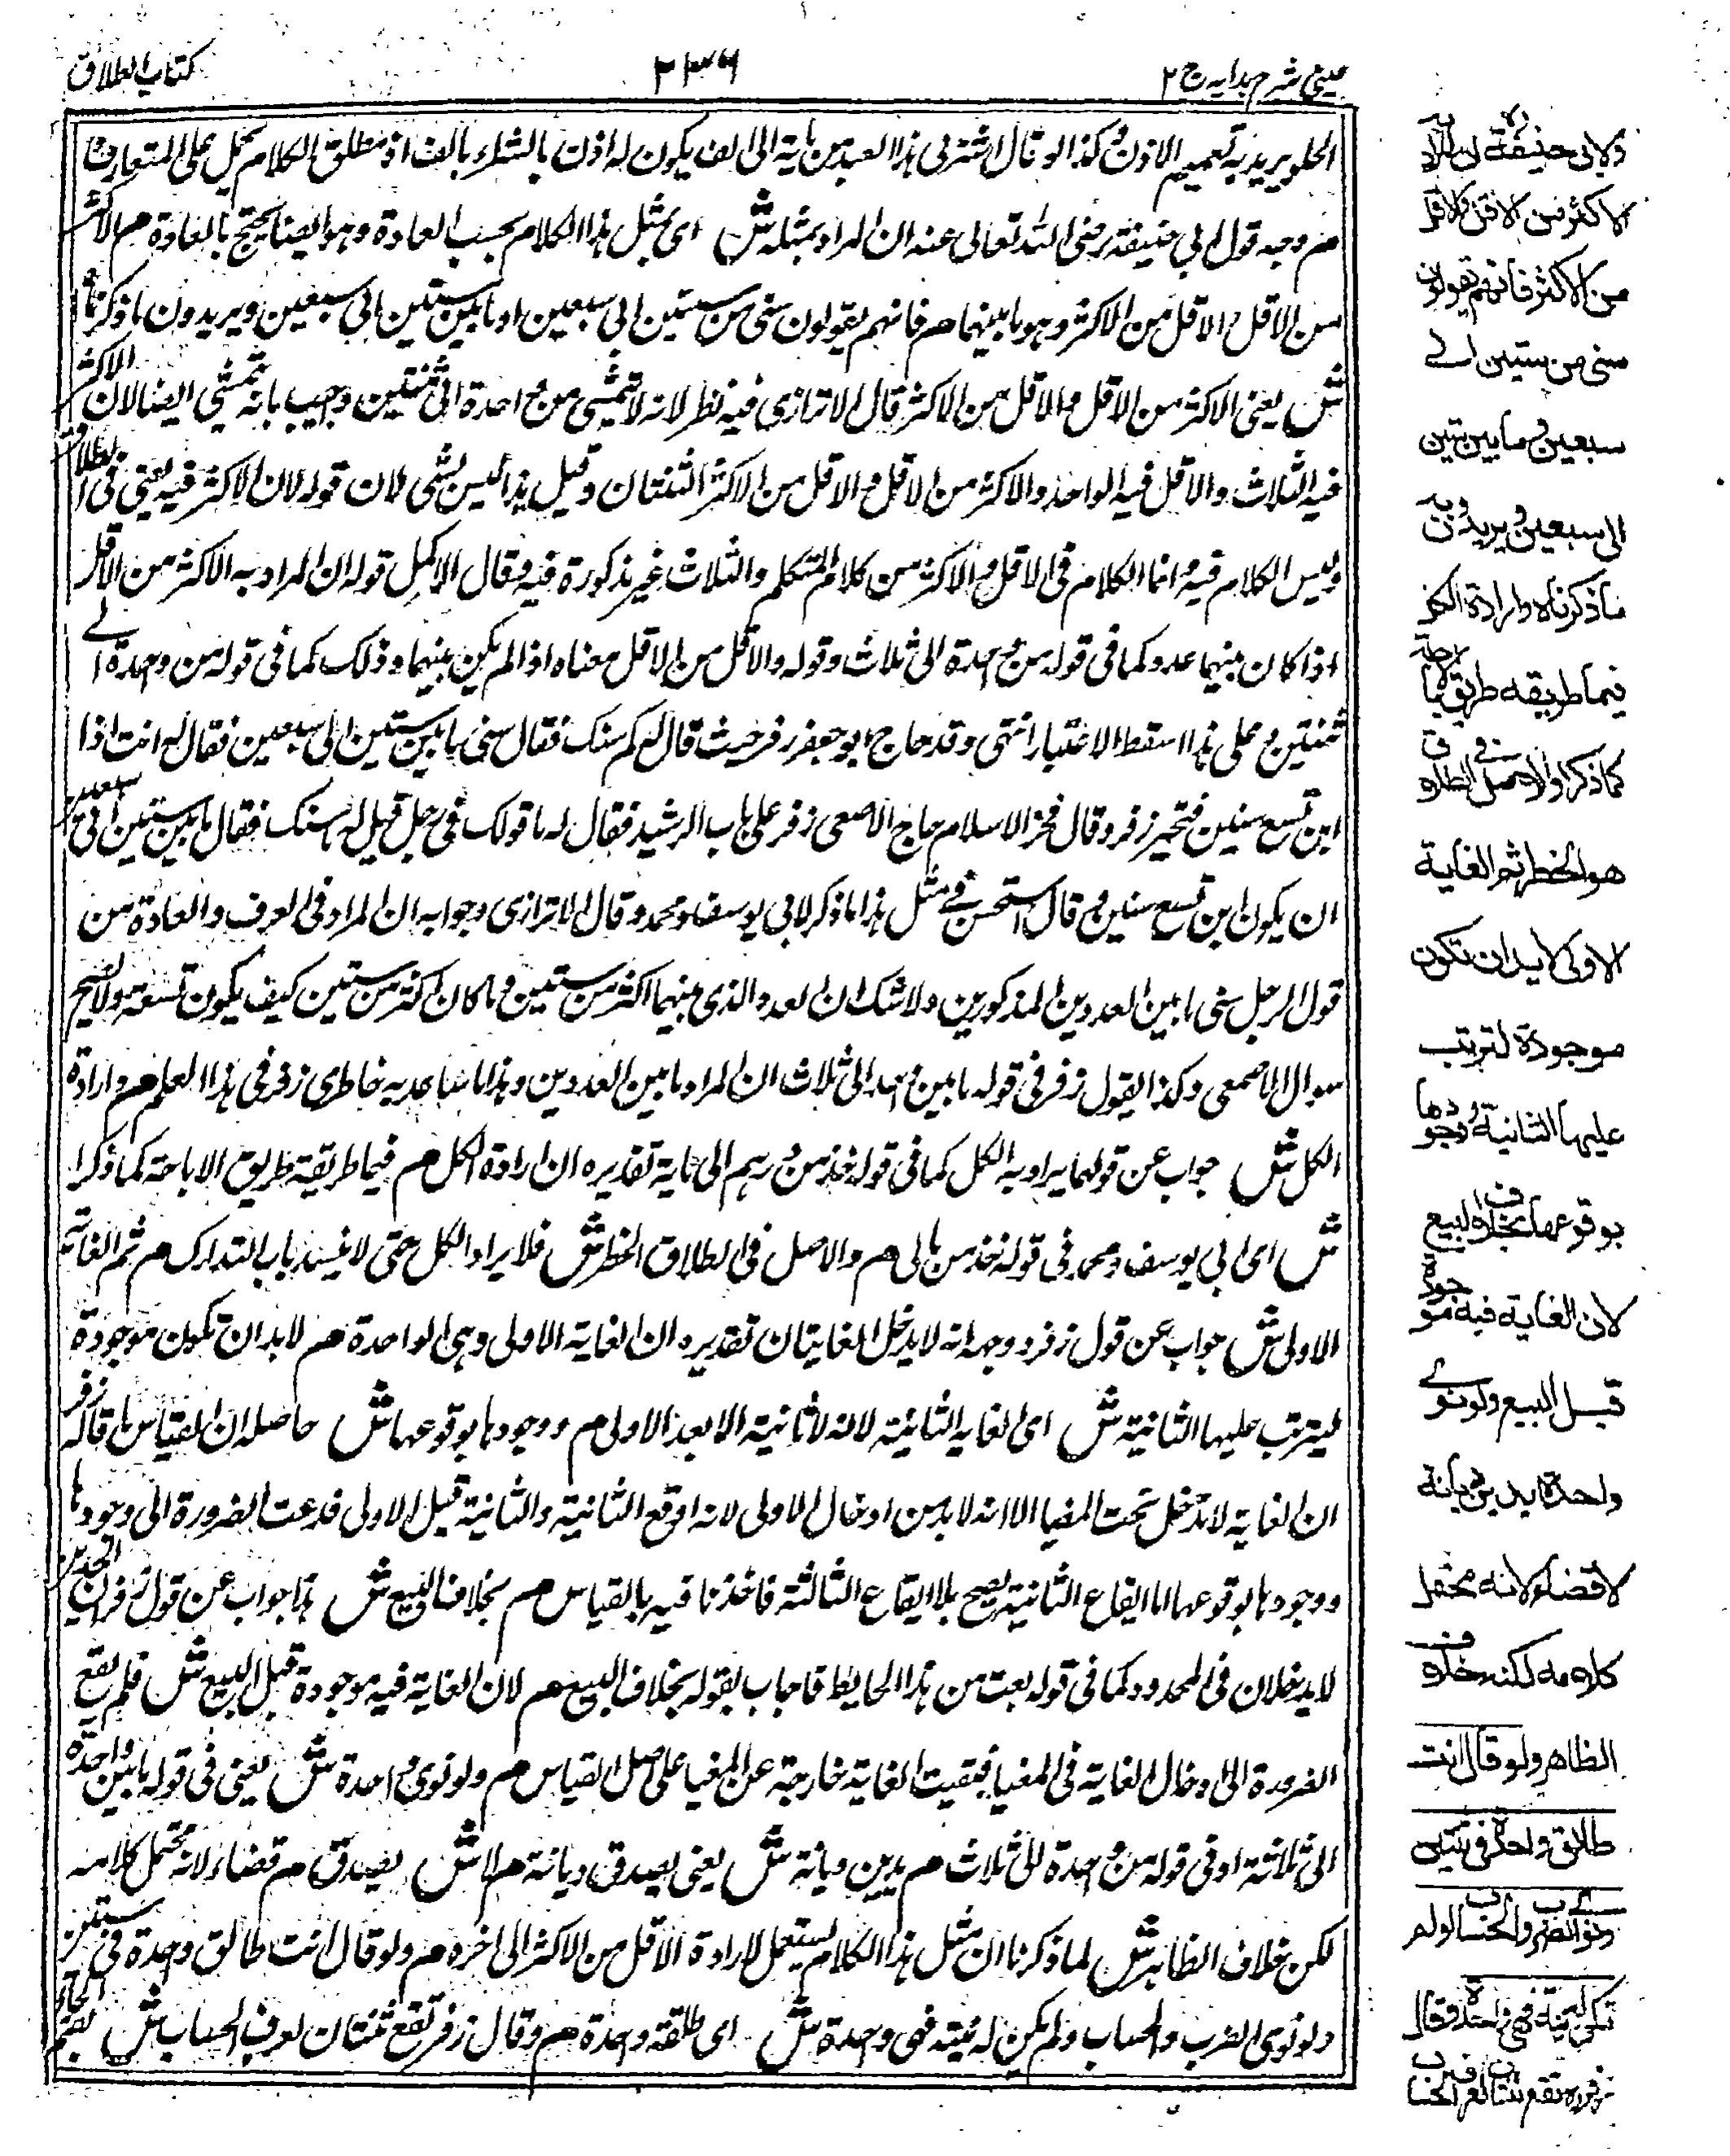 عینی شرح ہدایہ ج ۲
۳۳۶
کتاب الطلاق
الحلو يريد به تعميم الاذن وكذا لو قال اشتر لی هذا العبد من مایة الى الف یكون له اذن بالشراء بالف اذ مطلق الكلام یحمل على المتعارف
م وجه قول ابی حنیفة رضی الله تعالى عنه ان المراد بمثله ش ای بمثل هذا الكلام بحسب العادة وهو ایضا یحتج بالعادة م الاكثر
من الاقل والاقل من الاكثر وهو ما بینهما م فانهم یقولون سنی من ستین الى سبعین او ما بین ستین الى سبعین ویریدون ما ذكرناه
ش یعنی الاكثر من الاقل والاقل من الاكثر قال الاترازی فیه نظر لانه لا یتمشى من واحدة الى ثنتین واجیب بانه یتمشى ایضا لان الاكثر
فیه الثلاث والاقل فیه الواحد والاكثر من الاقل والاقل من الاكثر الثنتان وقیل هذا لیس بشی لان قوله لان الاكثر فیه یعنی فی الطلاق
ولیس الكلام فیه وانما الكلام فی الاقل والاكثر من كلام المتكلم والثلاث غیر مذكورة فیه وقال الاكمل قوله ان المراد به الاكثر من الاقل
اذا كان بینهما عدد كما فی قوله من واحدة الى ثلاث وقوله والاقل من الاقل معناه اذا لم یكن بینهما وذلك كما فی قوله من واحدة الے
ثنتین وعلى هذا سقط الاعتبار انتهى وقد حاج ابو جعفر زفر حیث قال له كم سنك فقال سنی ما بین ستین الى سبعین فقال له انت اذا
ابن تسع سنین فتحیر زفر وقال فخر الاسلام حاج الاصمعی زفر على باب الرشید فقال له ما قولك فی رجل قیل له ما سنك فقال ما بین ستین الى سبعین
ان یكون ابن تسع سنین وقال استحسن فے مثل هذا ما ذكر لابی یوسف ومحمد وقال الاترازی وجوابه ان المراد فی العرف والعادة من
قول الرجل سنی ما بین العددین المذكورین ولا شك ان العدد الذی بینهما اكثر من ستین وما كان اكثر من ستین كیف یكون تسعة ولا یصح
سوال الاصمعی وكذا یقول زفر فی قوله ما بین واحد الى ثلاث ان المراد ما بین العددین وهذا ما ساعد به خاطری زفر فی هذا العلم م وارادة
الكل ش جواب عن قولهما یراد به الكل كما فی قوله خذ من درهم الى مایة تقدیره ان ارادة الكل م فیما طریقة طریق الاباحة كما ذكرا
ش ای ابی یوسف ومحمد فی قوله خذ من مالی م والاصل فی الطلاق الحظر ش فلا یراد الكل حتى لا یفسد باب التدارك م ثم الغایة
الاولى ش جواب عن قول زفر ووجهه انه لا یدخل الغایتان تقدیره ان الغایة الاولى وهی الواحدة م لا بد ان تكون موجودة
لیترتب علیها الثانیة ش ای الغایة الثانیة لانه لا ثانیة الا بعد الاولى م ووجودها بوقوعها ش حاصله ان القیاس ما قاله زفر
ان الغایة لا تدخل تحت المغیا الا انه لا بد من ادخال الاولى لانه اوقع الثانیة والثانیة قبل الاولى فدعت الضرورة الى وجودها
ووجودها بوقوعها اما ایقاع الثانیة یصح بلا ایقاع الثالثة فاخذنا فیه بالقیاس م بخلاف البیع ش هذا جواب عن قول زفر ان الحدین
لا یدخلان فی المحدود كما فی قوله بعت من هذا الحایط فاجاب بقوله بخلاف البیع م لان الغایة فیه موجودة قبل البیع ش فلم یقع
الضرورة الى ادخال الغایة فی المغیا فبقیت الغایة خارجة عن المغیا على اصل القیاس م ولو نوى واحدة ش یعنی فی قوله ما بین واحدة
الى ثلاثة او فی قوله من واحدة الى ثلاث م یدین دیانة ش یعنی یصدق دیانة م لا ش یصدق م قضاء لانه محتمل كلامه
لكن خلاف الظاهر ش لما ذكرنا ان مثل هذا الكلام یستعمل لارادة الاقل من الاكثر الى اخره م ولو قال انت طالق واحدة فی ثنتین
ولو نوى الضرب والحساب ولم یكن له نیة فهی واحدة ش ای طلقة واحدة م وقال زفر تقع ثنتان لعرف الحساب ش
ولابی حنیفة ره ان المراد به
الاكثر من الاقل والاقل
من الاكثر فانهم یقولون
سنی من ستین الے
سبعین وما بین ستین
الى سبعین ویریدون به
ما ذكرناه وارادة الكل
فیما طریقه طریق الاباحة
كما ذكرا والاصل فے الطلاق
هو الحظر ثم الغایة
الاولى لابد ان تكون
موجودة لترتب
علیها الثانیة ووجودها
بوقوعها بخلاف البیع
لان الغایة فیه موجودة
قبل البیع ولو نوے
واحدة یدین دیانة
لا قضاء لانه محتمل
كلامه لكنه خلاف
الظاهر ولو قال انت
طالق واحدة فی ثنتین
ونوى الضرب والحساب او لم
تكن له نیة فهی واحدة وقال
زفر ره تقع ثنتان لعرف الحساب